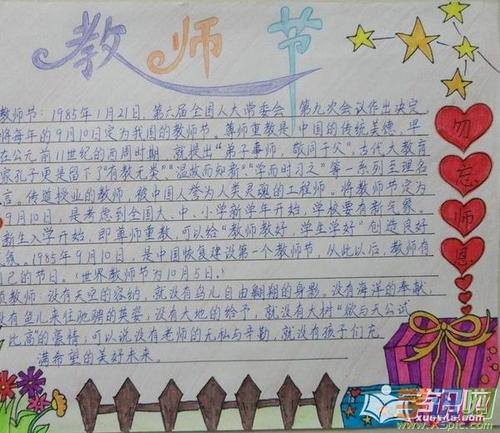 教师节
教师节：1985年1月21日，第六届全国人大常委会 第九次会议作出决定，
将每年的9月10日定为我国的教师节。尊师重教是中国的传统美德，早
在公元前11世纪的西周时期，就提出"弟子事师，敬同于父"。古代大教育
家孔子更是留下了"有教无类""温故而知新""学而时习之"等一系列至理名
言。传道授业的教师，被中国人誉为人类灵魂的工程师。将教师节定为
9月10日，是考虑到全国大、中、小学新学年开始，学校要有新气象。
新生入学开始，即尊师重教，可以给"教师教好，学生学好"创造良好
气氛。1985年9月10日，是中国恢复建设第一个教师节，从此以后，教师有
自己的节日。(世界教师节为10月5日。)
教师：没有天空的容纳，就没有鸟儿自由翱翔的身影，没有海洋的奉献，
没有鱼儿来往驰骋的英姿；没有大地的给予，就没有大树"欲与天公试
比高"的豪情；可以说没有老师的无私与辛勤，就没有孩子们充
满希望的美好未来。
勿
忘
师
恩
xuexila.com
www.xspic.com